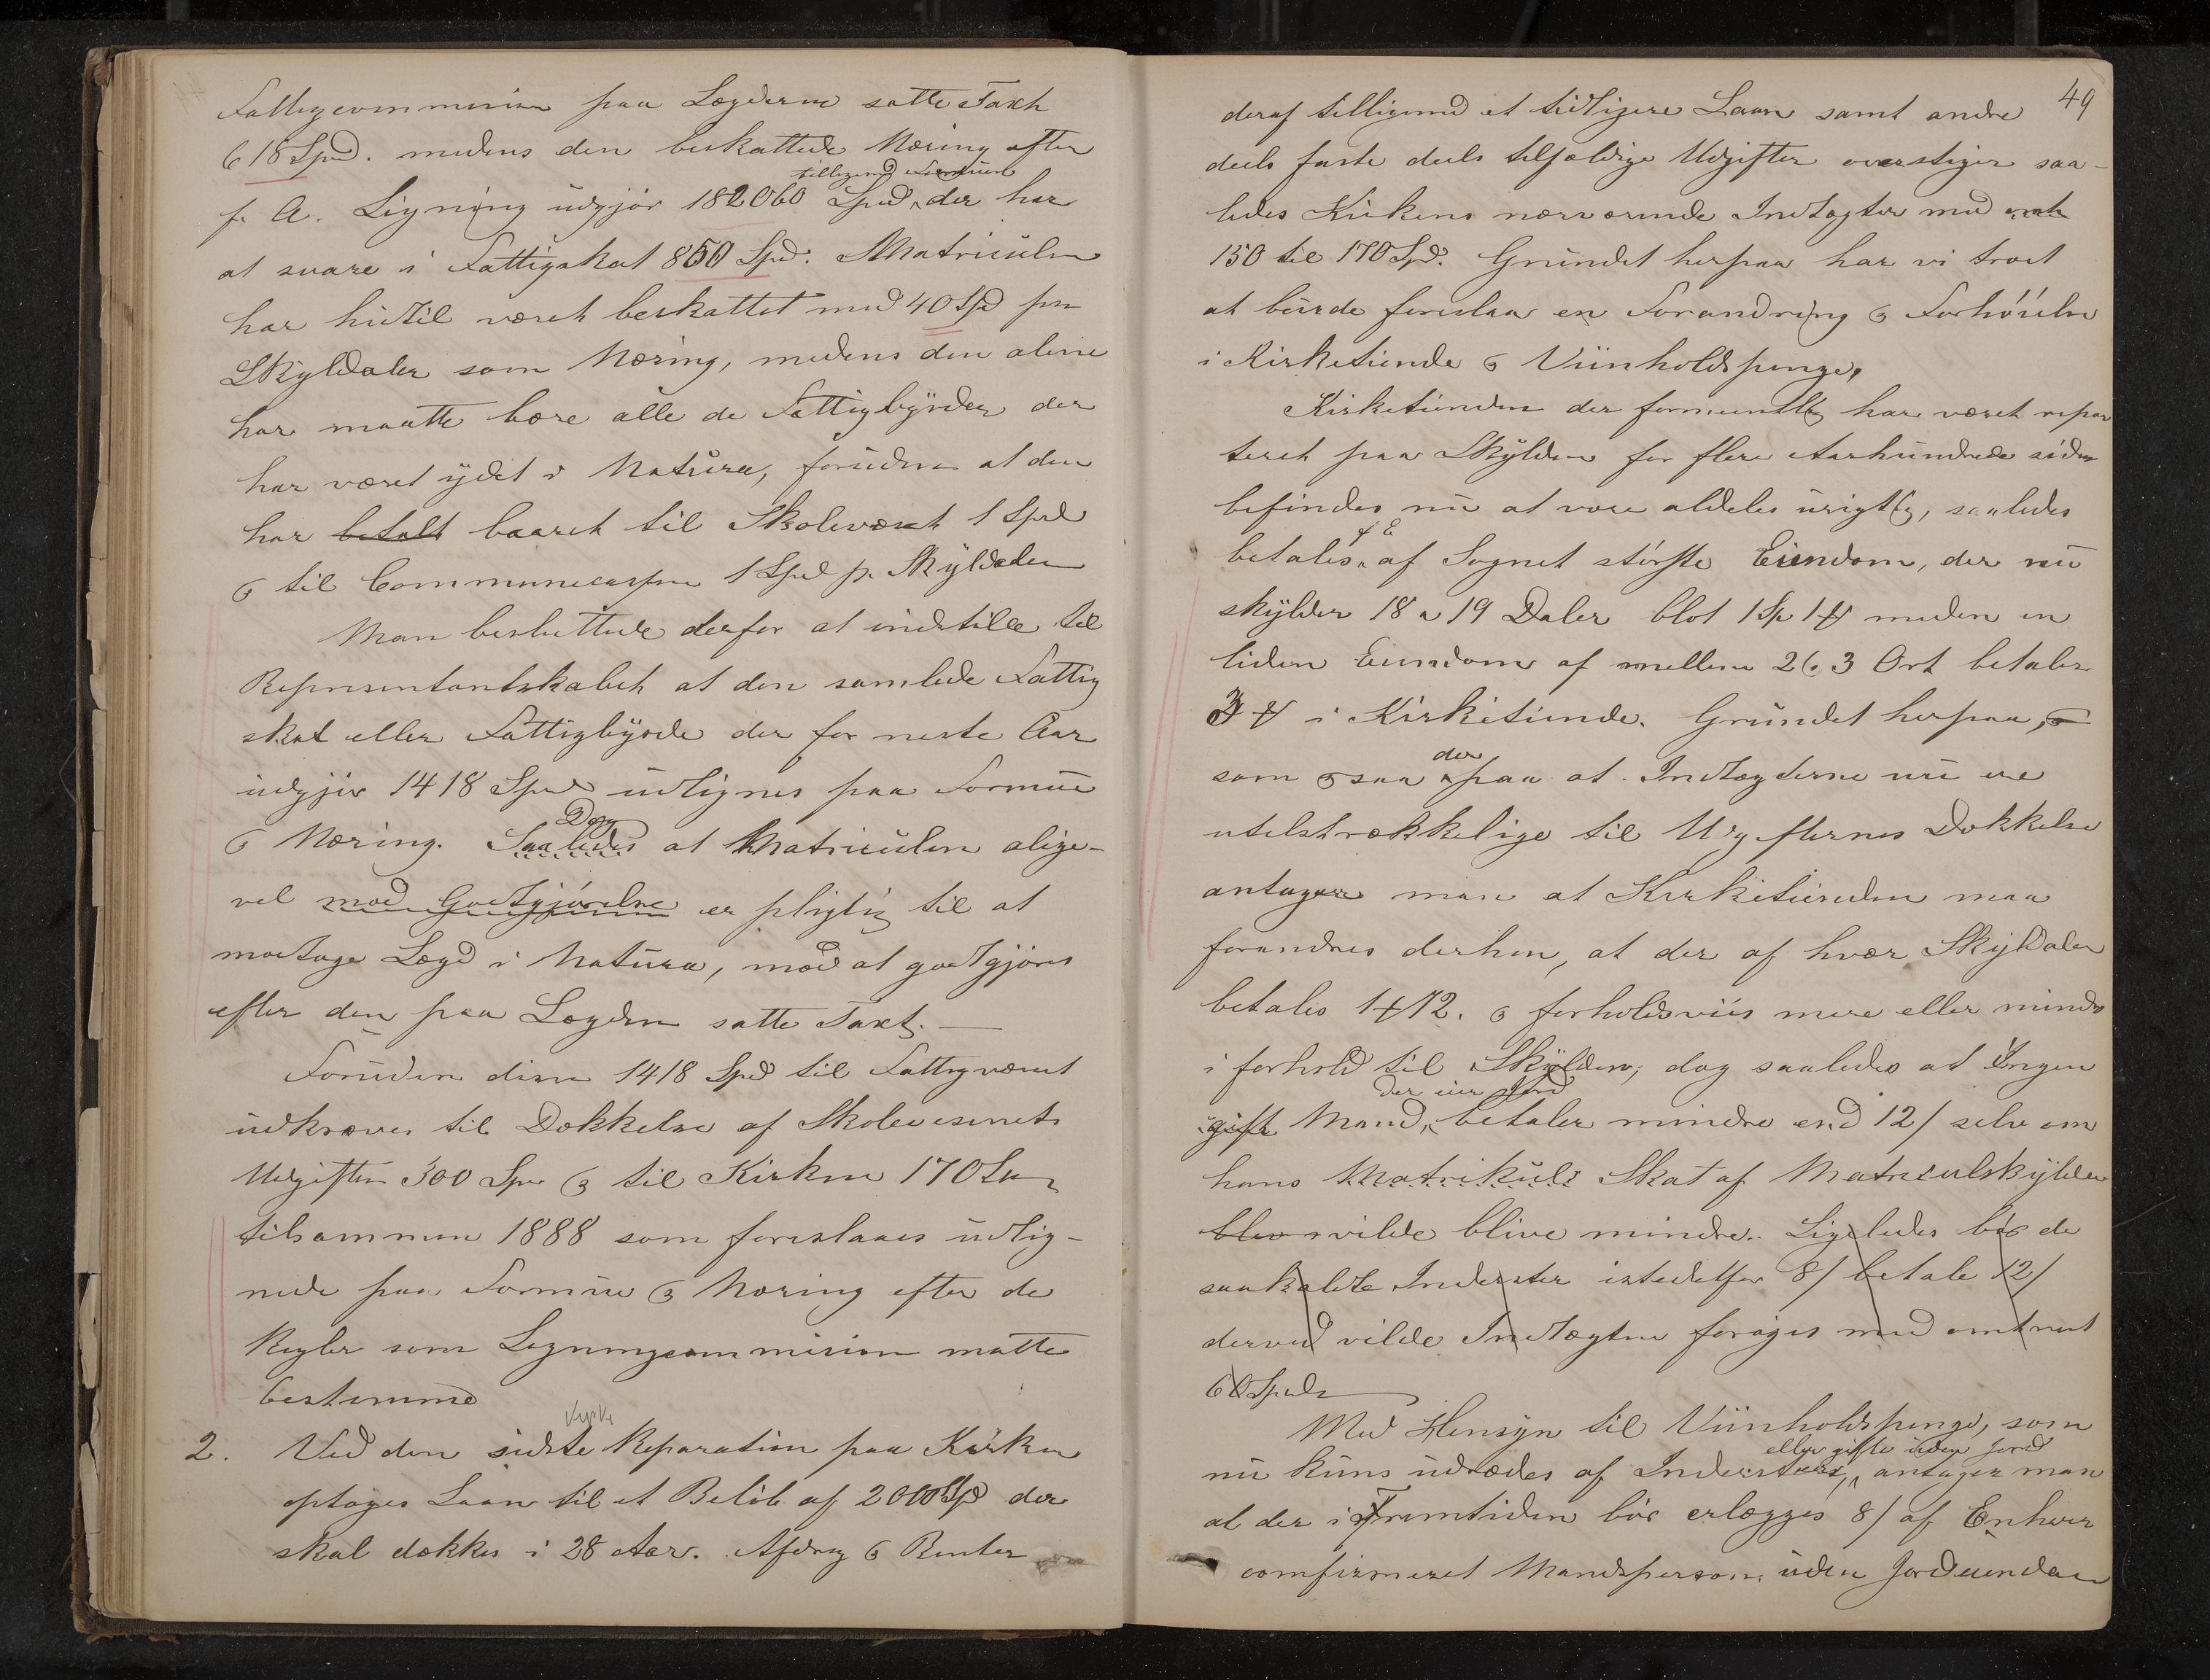 Fattigcommission paa Lægderne satte Taxt
618 Spd. medens den beskattede Næring efter
tilligemed Formuen
f. A. Ligning udgjør 182060 Spd, der har
at svare i Fattigskat 850 Spd. Matriculen
har hidtil været beskattet med 40 Spd pr
Skyldaler som Næring, medens den alene
har maatte bære alle de Fattigbyrder der
har været ydet i Natura, foruden at den
har betalt baaret til Skolevæsnt 1 Spd
& til Communecassen 1 Spd pr. Skyldaler
Man besluttede derfor at indstille til
Representantskabet at den samlede Fattig
skat eller Fattigbyrde der for neste Aar
udgjør 1418 Spd udlignes paa Formue
Dog
& Næring. Saaledes at Matriculen alige-
vel mod Godtgjørelse er pligtig til at
modtage Lægd i Natura, mod at godtgjøres
efter den paa Lægden satte Taxt. —
Foruden disse 1418 Spd til Fattigvæsnet
udkræves til Dækkelse af Skolevesenets
Udgifter 300 Spd & til Kirken 170 Spd
tilsammen 1888 som foreslaaes udlig-
nede paa Formue & Næring efter de
Regler som Ligningscommission maatte
bestemme
2. Ved den sidste Reparation paa Kirken
optoges Laan til et Beløb af 2000 Spd der
skal dækkes i 28 Aar. Afdrag & Renter
49
deraf tilligemed et tidligere Laan samt andre
deels faste deels tilfældige Udgifter overstiger saa-
ledes Kirkens nærværende Indtægter med
150 til 170 Spd. Grundet herpaa har vi troet
at burde foreslaa en Forandring & Forhøielse
i Kirketiende & Viinholdspenge,
Kirketienden der formentlig har været repar
teret paa Skylden for flere Aarhundrede siden
befindes nu at være aldeles urigtig, saaledes
betales af Sognet største Eiendom, der nu
skylder 18 a 19 Daler blot 1 Sp 1 ℔ meden en
liden Eiendom af mellem 2 & 3 Ort betaler
3 ℔ i Kirketiende. Grundet herpaa, &
der
som & saa paa at Indtægterne nu ere
utilstrækkelige til Udgifternes Dækkelse
antager man at Kirketienden maa
forandres derhen, at der af hver Skyldaler
betales 1 ℔ 12. & forholdsviis mere eller mindre
i forhold til Skylden; dog saaledes at Ingen
der eier Jord
gift Mand, betaler mindre end 12/ selv om
hans Matrikuls Skat af Matriculskylden
blev vilde blive mindre. Ligeledes bør de
saakaldte Inderster istedetfor 8/ betale 12/
derved vilde Indtægten forøges med omtrent
60 Spd
Med Hensyn til Viinholdspenge, som
eller gifte uden Jord
nu kuns udredes af Inderster, antager man
at der i Fremtiden bør erlægges 8/ af Enhver
comfirmeret Mandsperson uden Jordeiendom